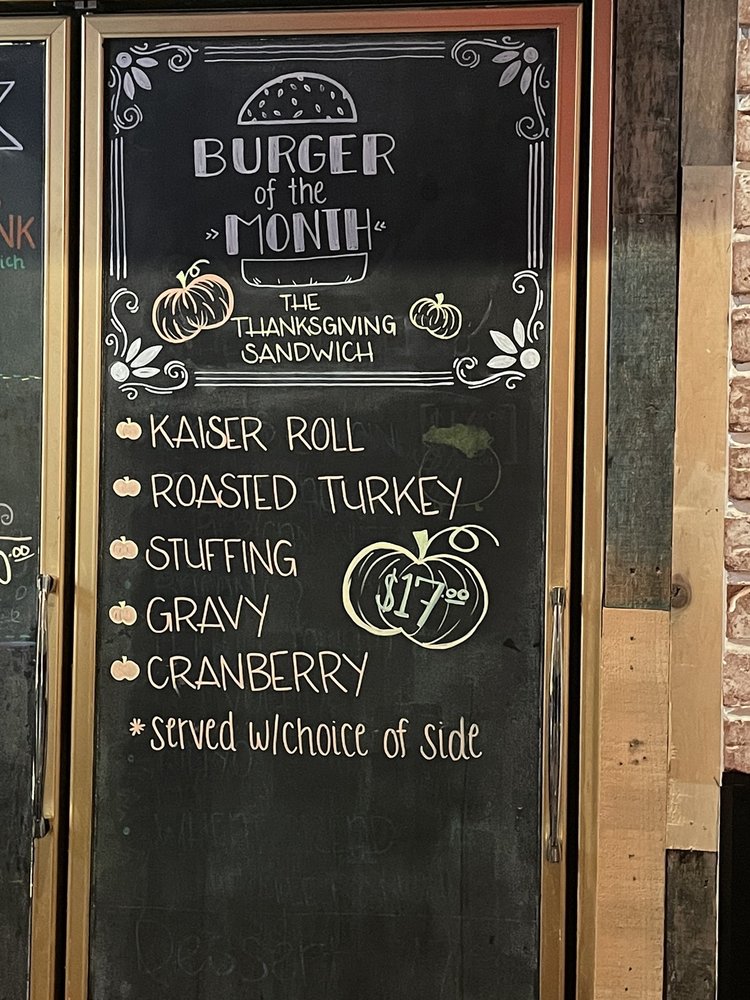 BURGER
of the
»MONTH«
THE
THANKSGIVING
SANDWICH
KAISER ROLL
ROASTED TURKEY
STUFFING
$17.00
GRAVY
CRANBERRY
*served w/choice of side
NK
ich
Dessert